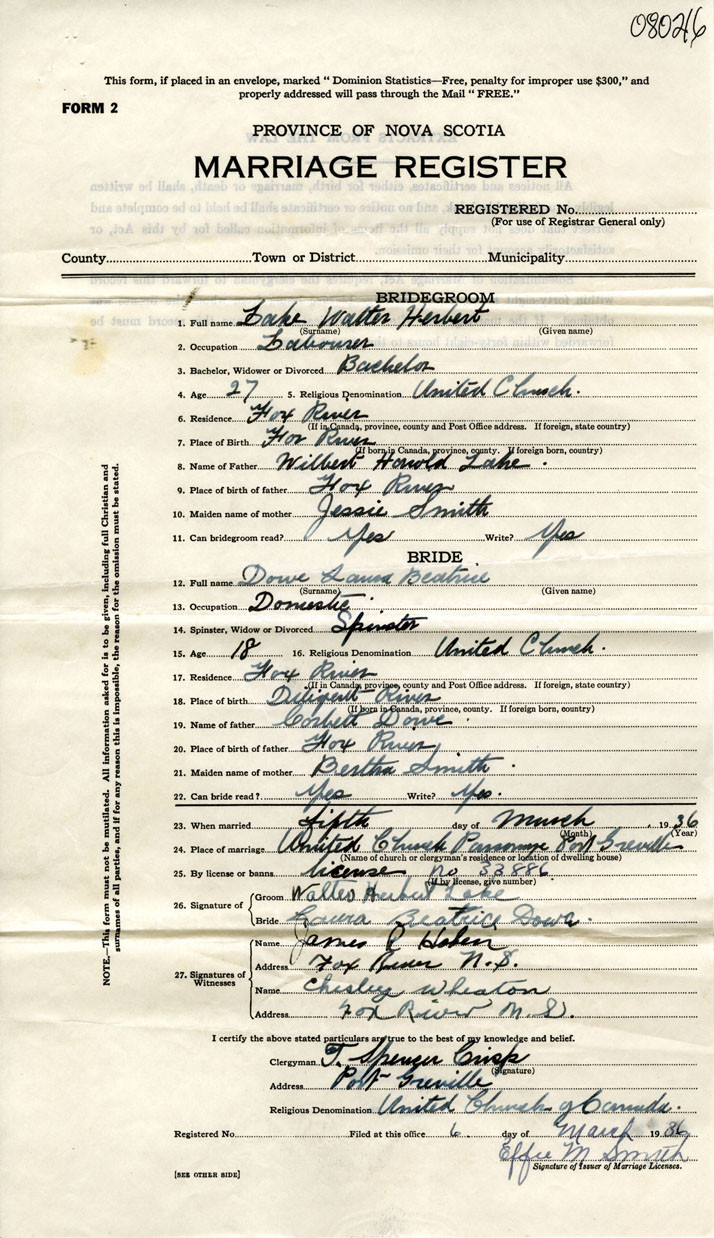 08026
This form, if placed in an envelope, marked " Dominion Statistics—Free, penalty for improper use $300," and
properly addressed will pass through the Mail " FREE."
FORM 2
PROVINCE OF NOVA SCOTIA
MARRIAGE REGISTER
REGISTERED No.
(For use of Registrar General only)
County Town or District Municipality
BRIDEGROOM
1. Full name Lake Walter Herbert
(Surname) (Given name)
2. Occupation Labourer
3. Bachelor, Widower or Divorced Bachelor
4. Age 27 5. Religious Denomination United Church.
6. Residence Fox River
(If in Canada, province, county and Post Office address. If foreign, state country)
7. Place of Birth Fox River
(If born in Canada, province, county. If foreign born, country)
8. Name of Father Wilbert Harold Lake.
9. Place of birth of father Fox River
10. Maiden name of mother Jessie Smith
11. Can bridegroom read? Yes Write? Yes
BRIDE
12. Full name Dowe Laura Beatrice
(Surname) (Given name)
13. Occupation Domestic.
14. Spinster, Widow or Divorced Spinster
15. Age 18 16. Religious Denomination United Church.
17. Residence Fox River
(If in Canada, province, county and Post Office address. If foreign, state country)
18. Place of birth Diligent River
(If born in Canada, province, county. If foreign born, country)
19. Name of father Corbett Dowe.
20. Place of birth of father Fox River
21. Maiden name of mother Bertha Smith.
22. Can bride read? Yes Write? Yes.
23. When married fifth day of March, 1936
(Month) (Year)
24. Place of marriage United Church Parsonage Port Greville
(Name of church or clergyman's residence or location of dwelling house)
25. By license or banns license no 33886
(If by license, give number)
26. Signature of
Groom Walter Herbert Lake
Bride Laura Beatrice Dowe.
27. Signatures of
Witnesses
Name James P
Address Fox River N.S.
Name Chesley Wheaton
Address Fox River N.S.
I certify the above stated particulars are true to the best of my knowledge and belief.
Clergyman T. Spencer Crisp
(Signature)
Address Port Greville
Religious Denomination United Church of Canada.
Registered No. Filed at this office 6 day of March 1936
Effie M Smith
Signature of Issuer of Marriage Licenses.
[SEE OTHER SIDE]
NOTE.—This form must not be mutilated. All information asked for is to be given, including full Christian and
surnames of all parties, and if for any reason this is impossible, the reason for the omission must be stated.